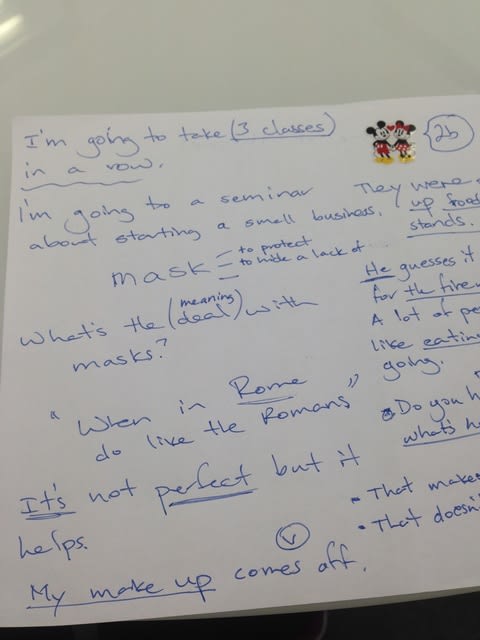 I'm going to take (3 classes)
in a row.
I'm going to a seminar
about starting a small business.
mask
to protect
to hide a lack of
What's the (deal) with
meaning
masks?
"When in Rome
do like the Romans"
It's not perfect but it
helps.
V
My make up comes off.
2b
They were
up food
stands.
He guesses it
for the
A lot of
like eating
going.
Do you
what's
That makes
That